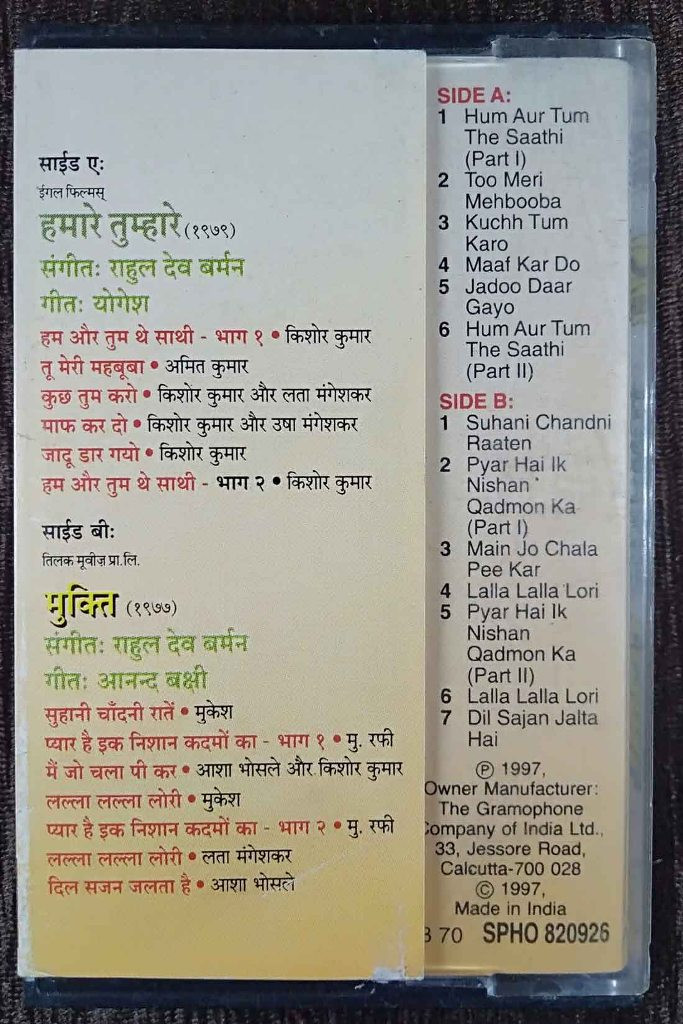 साईड ए:
ईगल फिल्मस्
हमारे तुम्हारे (१९७९)
संगीत: राहुल देव बर्मन
गीत: योगेश
हम और तुम थे साथी - भाग १ • किशोर कुमार
तू मेरी महबूबा • अमित कुमार
कुछ तुम करो • किशोर कुमार और लता मंगेशकर
माफ कर दो • किशोर कुमार और उषा मंगेशकर
जादू डार गयो • किशोर कुमार
हम और तुम थे साथी - भाग २ • किशोर कुमार
साईड बी:
तिलक मूवीज़ प्रा.लि.
मुक्ति (१९७७)
संगीत: राहुल देव बर्मन
गीत: आनन्द बक्षी
सुहानी चाँदनी रातें • मुकेश
प्यार है इक निशान कदमों का - भाग १ • मु. रफी
मैं जो चला पी कर • आशा भोसले और किशोर कुमार
लल्ला लल्ला लोरी • मुकेश
प्यार है इक निशान कदमों का - भाग २ • मु. रफी
लल्ला लल्ला लोरी • लता मंगेशकर
दिल सजन जलता है • आशा भोसले
SIDE A:
1 Hum Aur Tum
The Saathi
(Part I)
2 Too Meri
Mehbooba
3 Kuchh Tum
Karo
4 Maaf Kar Do
5 Jadoo Daar
Gayo
6 Hum Aur Tum
The Saathi
(Part II)
SIDE B:
1 Suhani Chandni
Raaten
2 Pyar Hai Ik
Nishan
Qadmon Ka
(Part I)
3 Main Jo Chala
Pee Kar
4 Lalla Lalla Lori
5 Pyar Hai Ik
Nishan
Qadmon Ka
(Part II)
6 Lalla Lalla Lori
7 Dil Sajan Jalta
Hai
℗ 1997,
Owner Manufacturer:
The Gramophone
Company of India Ltd.,
33, Jessore Road,
Calcutta-700 028
© 1997,
Made in India
70 SPHO 820926